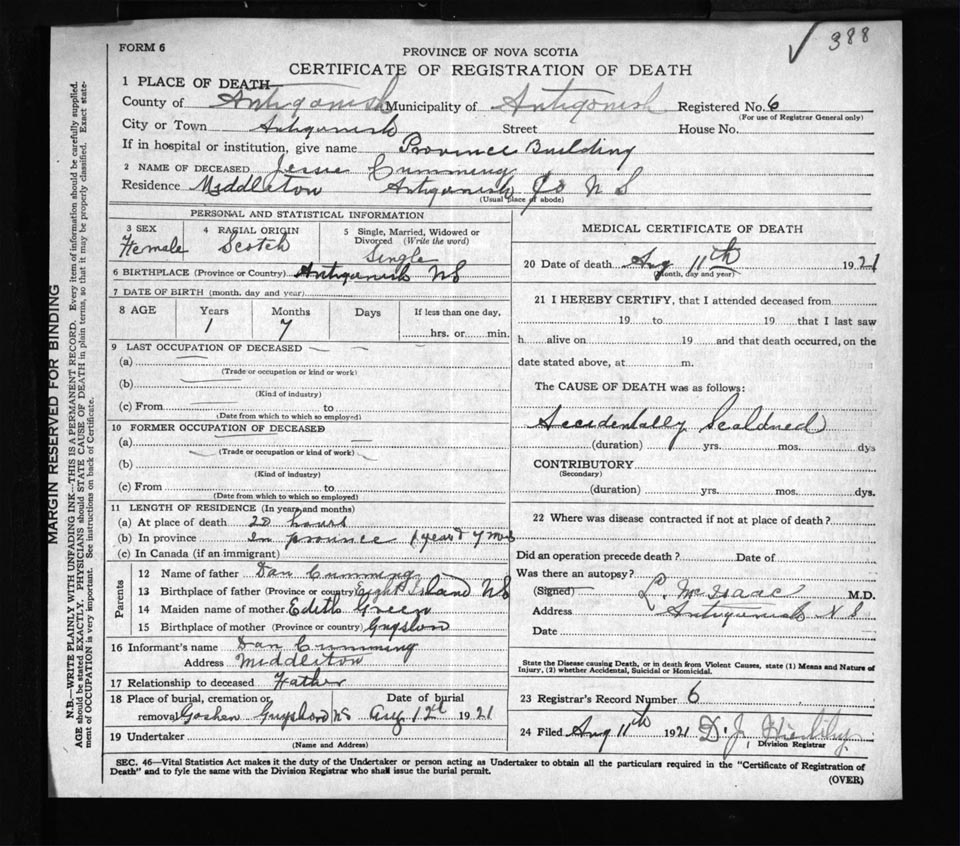 388
FORM 6
PROVINCE OF NOVA SCOTIA
CERTIFICATE OF REGISTRATION OF DEATH
1 PLACE OF DEATH
County of Antigonish Municipality of Antigonish Registered No. 6
(For use of Registrar General only)
City or Town Antigonish Street House No.
If in hospital or institution, give name Province Building
2 NAME OF DECEASED Jessie Cumming
Residence Middleton Antigonish Co N S
(Usual place of abode)
PERSONAL AND STATISTICAL INFORMATION
3 SEX Female
4 RACIAL ORIGIN Scotch
5 Single, Married, Widowed or Divorced (Write the word) Single
6 BIRTHPLACE (Province or Country) Antigonish NS
7 DATE OF BIRTH (month, day and year)
8 AGE Years Months Days If less than one day,
1 7 hrs. or min.
9 LAST OCCUPATION OF DECEASED
(a)
(Trade or occupation or kind or work)
(b)
(Kind of industry)
(c) From to
(Date from which to which so employed)
10 FORMER OCCUPATION OF DECEASED
(a)
(Trade or occupation or kind of work)
(b)
(Kind of industry)
(c) From to
(Date from which to which so employed)
11 LENGTH OF RESIDENCE (In years and months)
(a) At place of death 20 hours
(b) In province In province 1 year & 7 mos
(c) In Canada (if an immigrant)
Parents
12 Name of father Dan Cumming
13 Birthplace of father (Province or country) Eight Island NS
14 Maiden name of mother Edith Green
15 Birthplace of mother (Province or country) Guysboro
16 Informant's name Dan Cumming
Address Middleton
17 Relationship to deceased Father
18 Place of burial, cremation or Date of burial
removal Goshen Guysboro NS Aug 12th 1921
19 Undertaker
(Name and Address)
MEDICAL CERTIFICATE OF DEATH
20 Date of death Aug 11th 1921
(Month, day and year)
21 I HEREBY CERTIFY, that I attended deceased from
19 to 19 that I last saw
h alive on 19 and that death occurred, on the
date stated above, at m.
The CAUSE OF DEATH was as follows:
Accidentally Scalded
(duration) yrs. mos. dys
CONTRIBUTORY
(Secondary)
(duration) yrs. mos. dys.
22 Where was disease contracted if not at place of death?
Did an operation precede death? Date of
Was there an autopsy?
(Signed) L. McIsaac M.D.
Address Antigonish N S
Date
State the Disease causing Death, or in death from Violent Causes, state (1) Means and Nature of
Injury, (2) whether Accidental, Suicidal or Homicidal.
23 Registrar's Record Number 6
24 Filed Aug 11th 1921 D. J.
Division Registrar
SEC. 46—Vital Statistics Act makes it the duty of the Undertaker or person acting as Undertaker to obtain all the particulars required in the "Certificate of Registration of
Death" and to fyle the same with the Division Registrar who shall issue the burial permit.
(OVER)
MARGIN RESERVED FOR BINDING
N.B.—WRITE PLAINLY WITH UNFADING INK—THIS IS A PERMANENT RECORD. Every item of information should be carefully supplied.
AGE should be stated EXACTLY. PHYSICIANS should STATE CAUSE OF DEATH in plain terms, so that it may be properly classified. Exact state-
ment of OCCUPATION is very important. See instructions on back of Certificate.